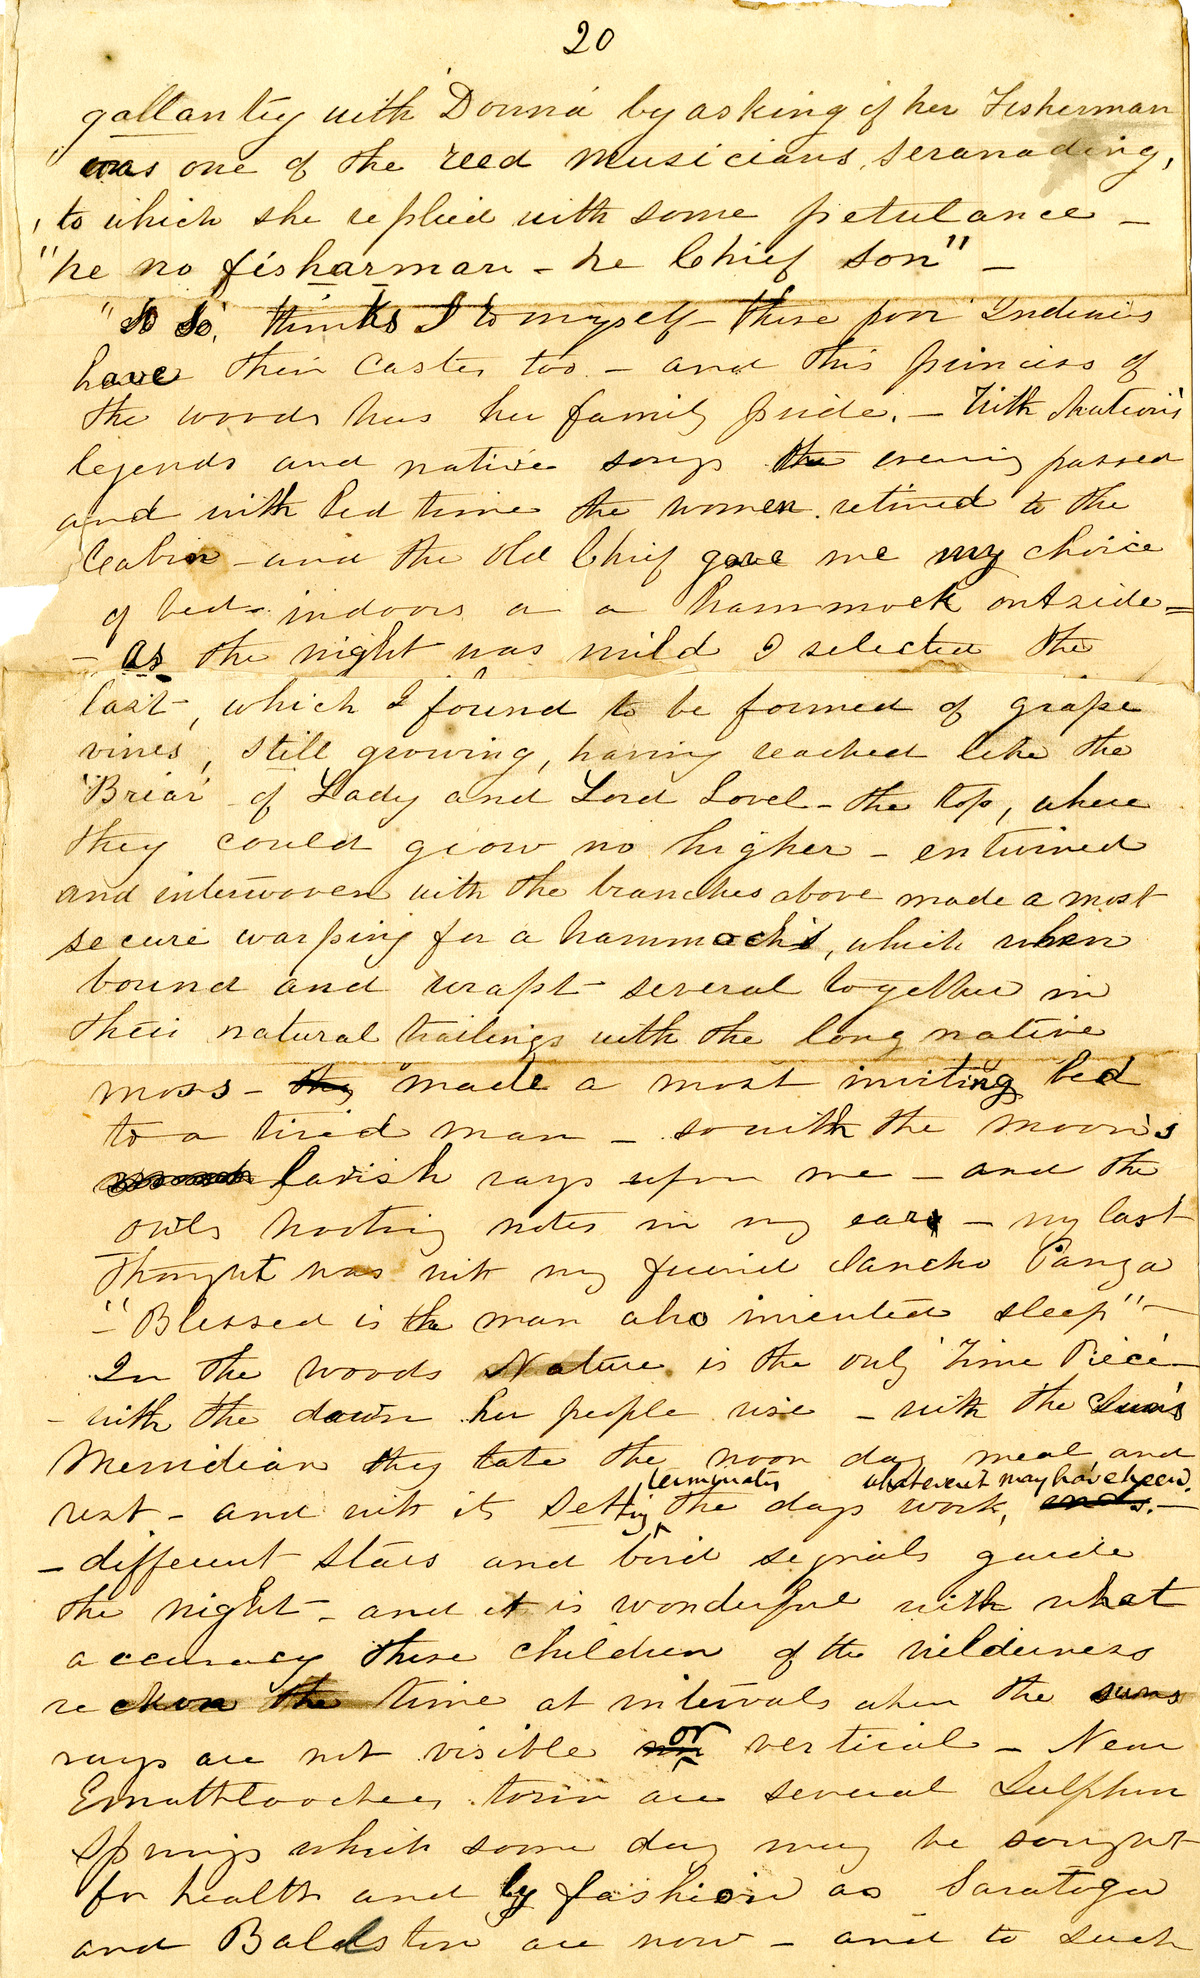 20
gallantry with Donna by asking if her Fisherman
was one of the reed musicians, seranading,
to which she replied with some petulance –
"he no fisharman – he Chief son" –
"So So', thinks I to myself – these poor Indians
have their castes too – and this princess of
the woods has her family pride. – With Nation's
legends and native songs the evening passed
and with bed time the women retired to the
Cabin – and the old Chief gave me my choice
of beds indoors or a hammock outside =
– as the night was mild I selected the
last, which I found to be formed of grape
vines, still growing, having reached like the
'Briar' of Lady and Lord Lovel – the top, where
they could grow no higher – entwined
and interwoven with the branches above made a most
secure warping for a hammock's, which when
bound and wrapt several together in
their natural trailings with the long native
moss – they made a most inviting bed
to a tired man – so with the moon's
lavish rays upon me – and the
owls hooting notes in my ears – my last
thought was with my friend Sancho Panza
– "Blessed is the man who invented sleep" –
In the woods Nature is the only 'Time Piece' –
– with the dawn her people rise – with the Sun's
Merridian they take the noon day meal and
rest – and with it Setting terminates the days work, whatever it may have been. ends. –
– different stars and bird signals guide
the night – and it is wonderful with what
accuracy these children of the wilderness
reckon the time at intervals when the suns
rays are not visible or vertical – Near
Emathloochees town are several Sulphur
Springs which some day may be sought
for health and by fashion as Saratoga
and Balalston are now – and to such